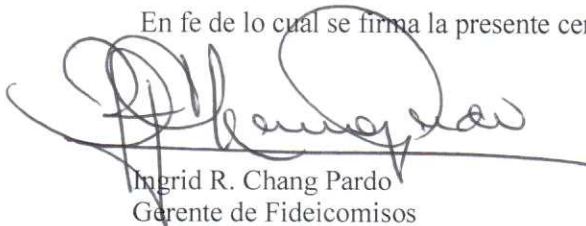 En fe de lo cual se firma la presente cer
Ingrid R. Chang Pardo
Gerente de Fideicomisos